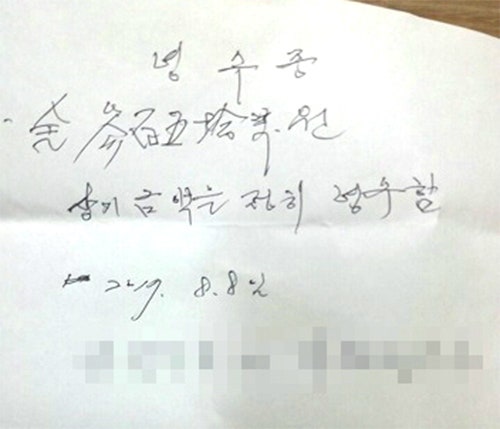 영수증
金 參百五拾萬원
상기 금액은 정히 영수함
2019. 8. 8일